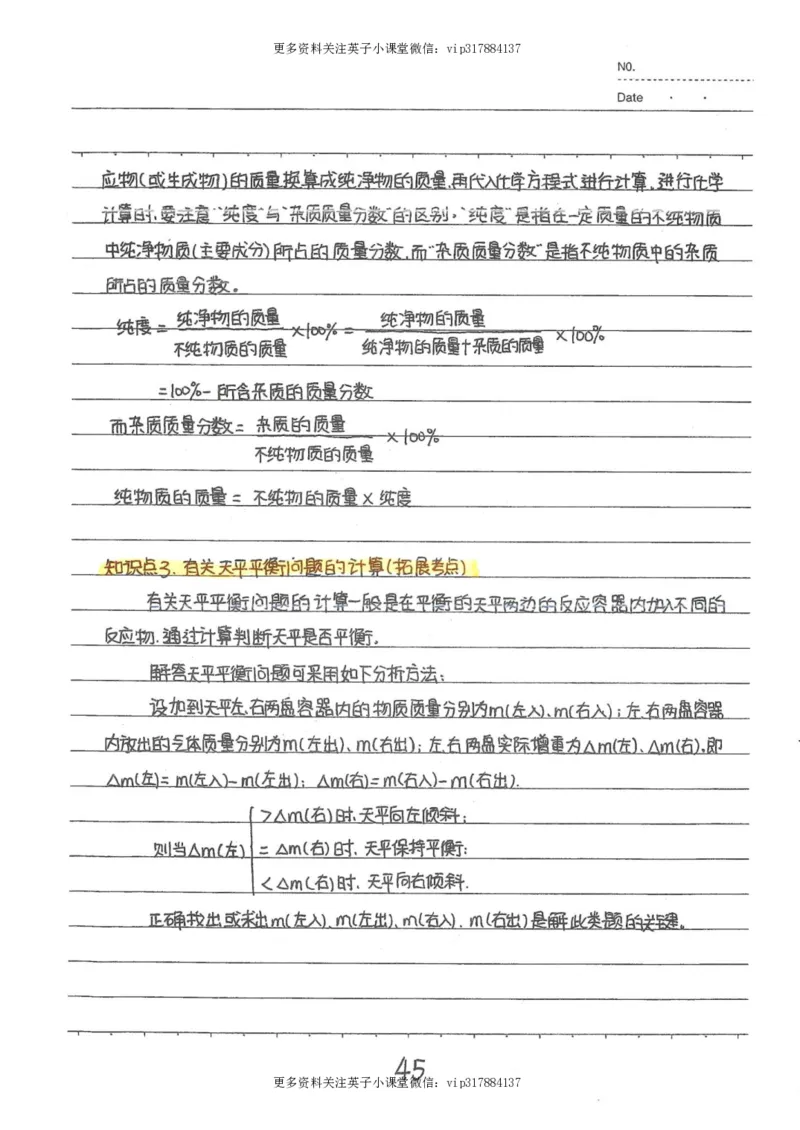 更多资料关注英子小课堂微信：vip317884137
NO.
Date · ·
应物(或生成物)的质量换算成纯净物的质量,再代入化学方程式进行计算,进行化学
计算时,要注意“纯度”与“杂质质量分数”的区别,“纯度”是指在一定质量的不纯物质
中纯净物质(主要成分)所占的质量分数,而“杂质质量分数”是指不纯物质中的杂质
所占的质量分数。
纯度 = 纯净物的质量 / 不纯物质的质量 ×100% = 纯净物的质量 / 纯净物的质量+杂质的质量 ×100%
=100%-所含杂质的质量分数
而杂质质量分数 = 杂质的质量 / 不纯物质的质量 ×100%
纯物质的质量 = 不纯物的质量 × 纯度
知识点3.有关天平平衡问题的计算(拓展考点)
有关天平平衡问题的计算一般是在平衡的天平两边的反应容器内加入不同的
反应物.通过计算判断天平是否平衡.
解答天平平衡问题可采用如下分析方法:
设加到天平左、右两盘容器内的物质质量分别为m(左入)、m(右入);左、右两盘容器
内放出的气体质量分别为m(左出)、m(右出);左、右两盘实际增重为△m(左)、△m(右),即
△m(左)=m(左入)-m(左出);△m(右)=m(右入)-m(右出).
>△m(右)时,天平向左倾斜;
则当△m(左) =△m(右)时,天平保持平衡;
<△m(右)时,天平向右倾斜.
正确找出或求出m(左入)、m(左出)、m(右入)、m(右出)是解此类题的关键。
45
更多资料关注英子小课堂微信：vip317884137